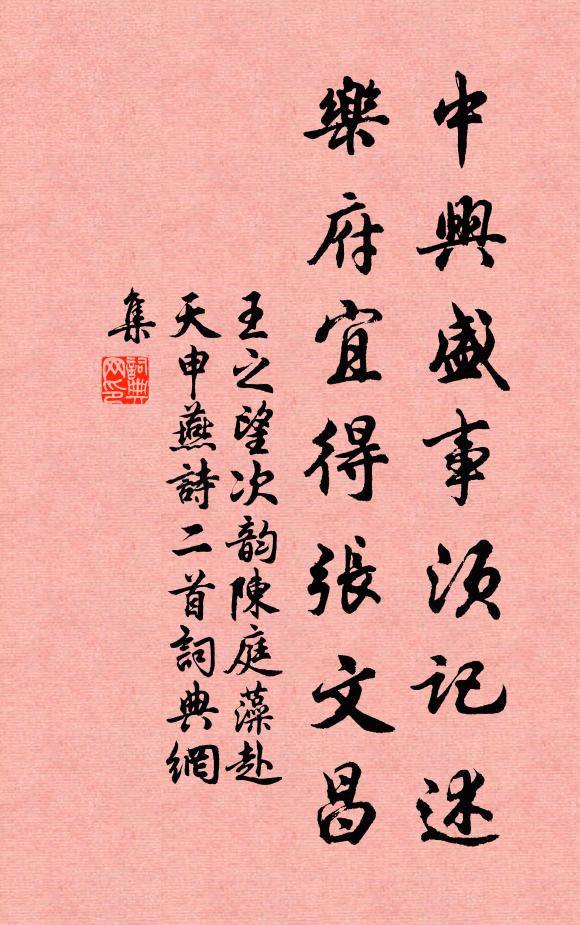 中興盛事須記述
樂府宜得張文昌
王之望次韵陳庭藻赴
天申燕詩二首詞典網
集
詞典
网印